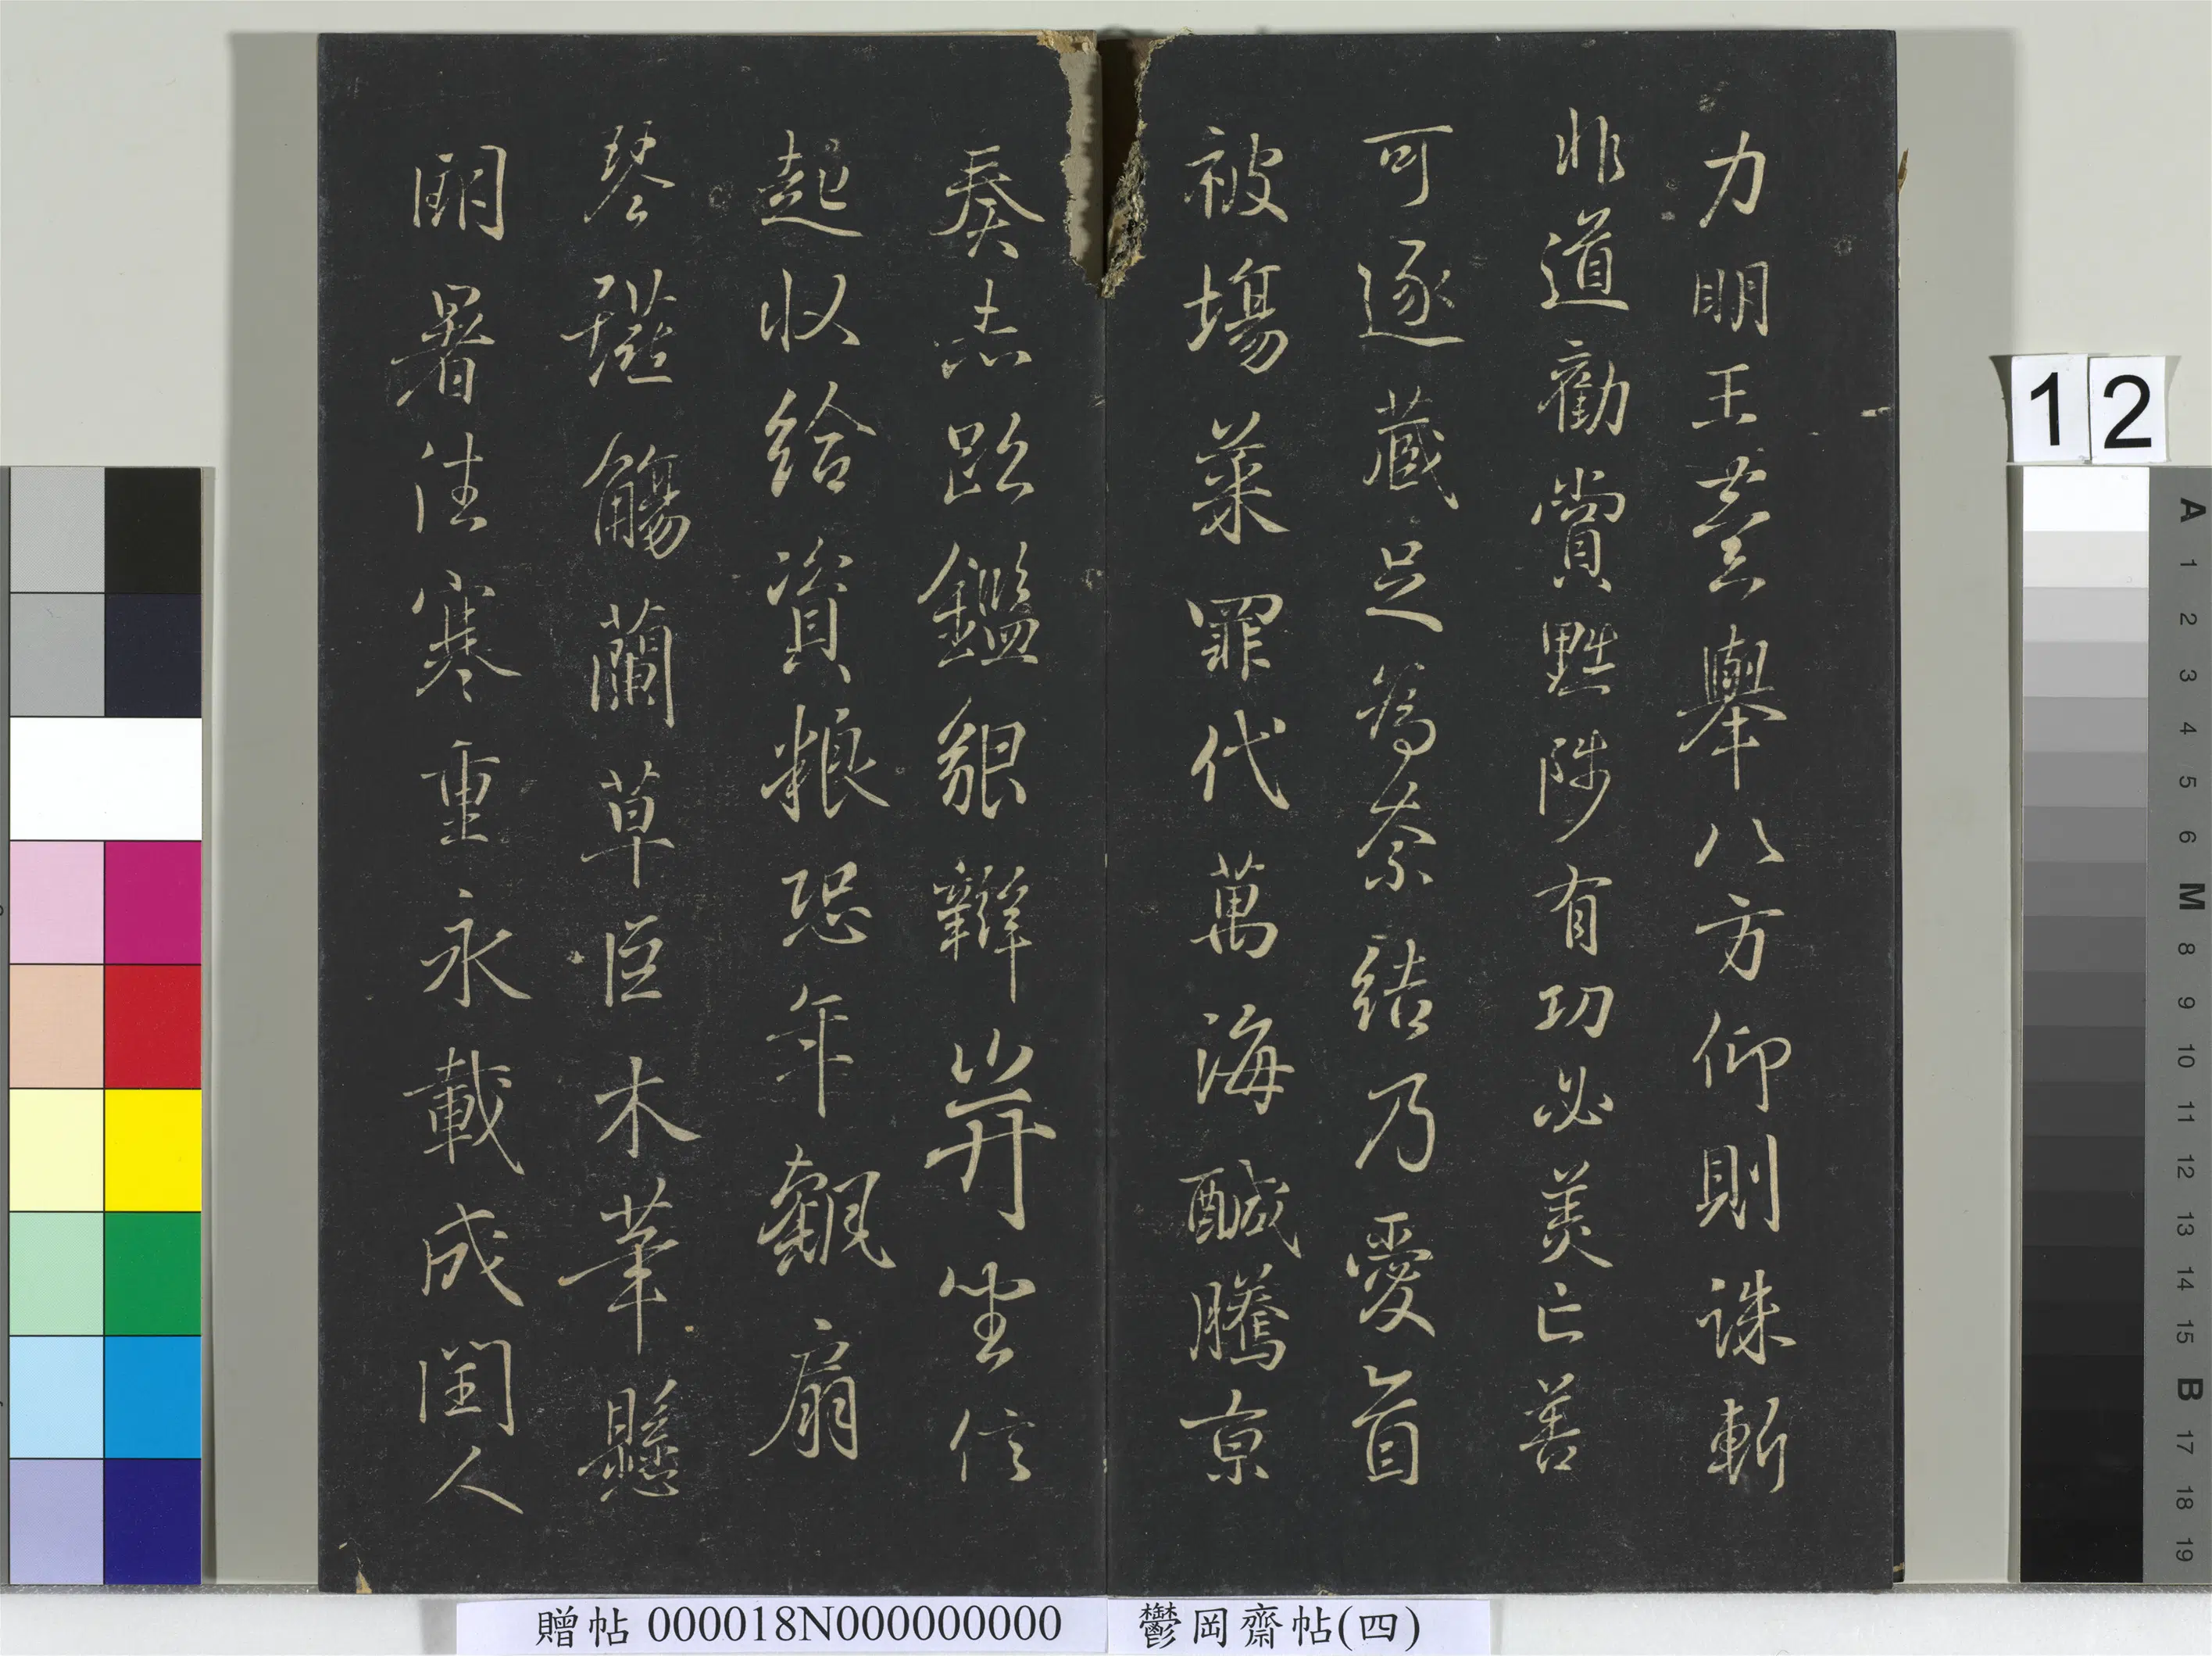 力明王臺舉八方仰則誅斬
非道勸賞黜陟有功必美亡善
可逐藏足為奈結乃愛首
被場菜罪代萬海鹹騰京
奏志鑑貌辯弁坐信
起收給資粮恐年觀扇
琴觴蘭草臣木華懸
署往寒重永載成閏人
12
A 1 2 3 4 5 6 M 8 9 10 11 12 13 14 15 B 17 18 19
贈帖 000018N000000000
鬱岡齋帖(四)